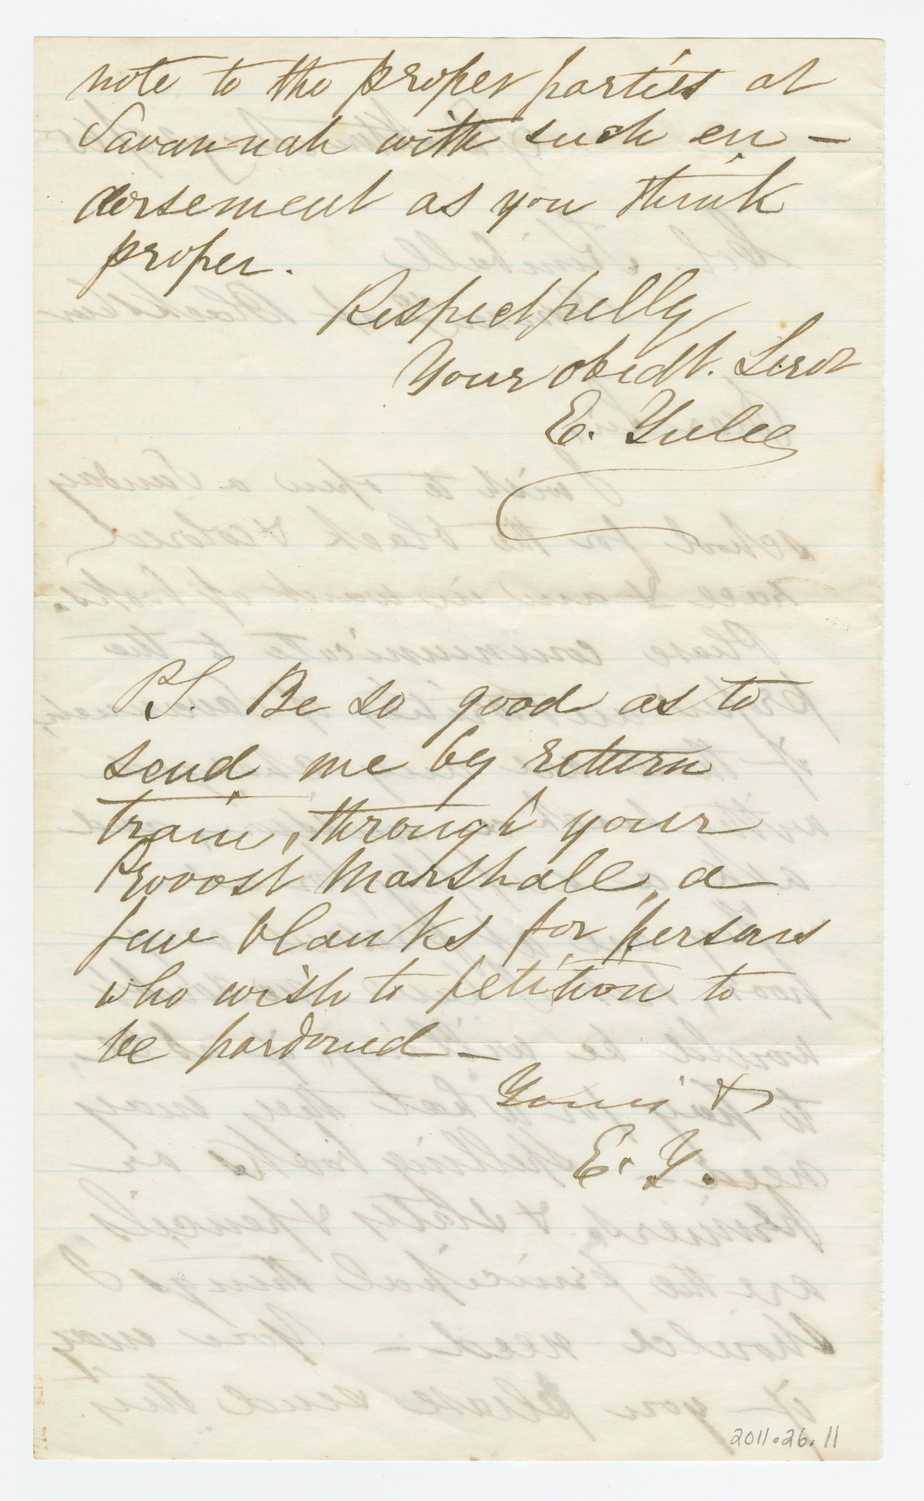 note to the proper parties at
Savannah with such en-
dorsement as you think
proper.
Respectfully
Your obedt. Servt
E. Yulee
PS. Be so good as to
send me by return
train, through your
Provost Marshall, a
few blanks for persons
who wish to petition to
be pardoned -
Yours &
E. Y.
2011.26.11